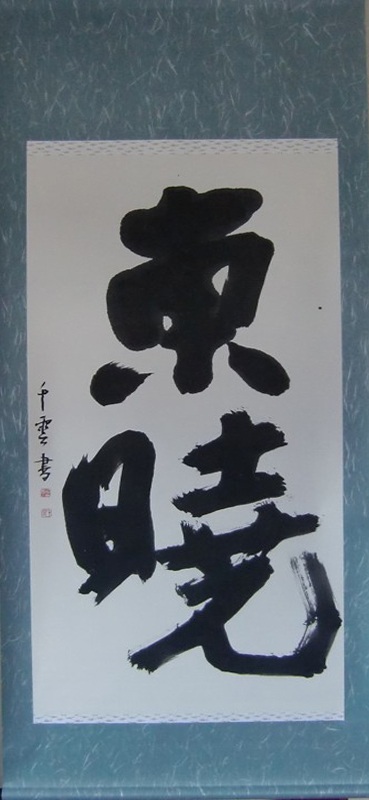 東
暁
千雲書